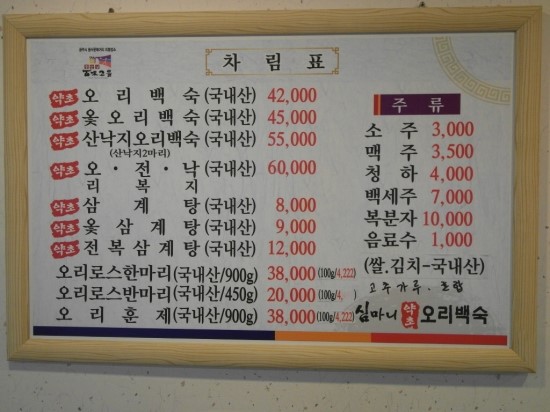 차림표
약초 오리백숙(국내산) 42,000
약초 옻오리백숙(국내산) 45,000
약초 산낙지오리백숙(국내산) 55,000
(산낙지2마리)
약초 오·전·낙(국내산) 60,000
리 복 지
약초 삼계탕(국내산) 8,000
약초 옻삼계탕(국내산) 9,000
약초 전복삼계탕(국내산) 12,000
오리로스한마리(국내산/900g) 38,000(100g/4,222)
오리로스반마리(국내산/450g) 20,000(100g/4, )
오리훈제(국내산/900g) 38,000(100g/4,222)
주류
소주 3,000
맥주 3,500
청하 4,000
백세주 7,000
복분자 10,000
음료수 1,000
(쌀.김치-국내산)
고추가루.
심마니 약초 오리백숙